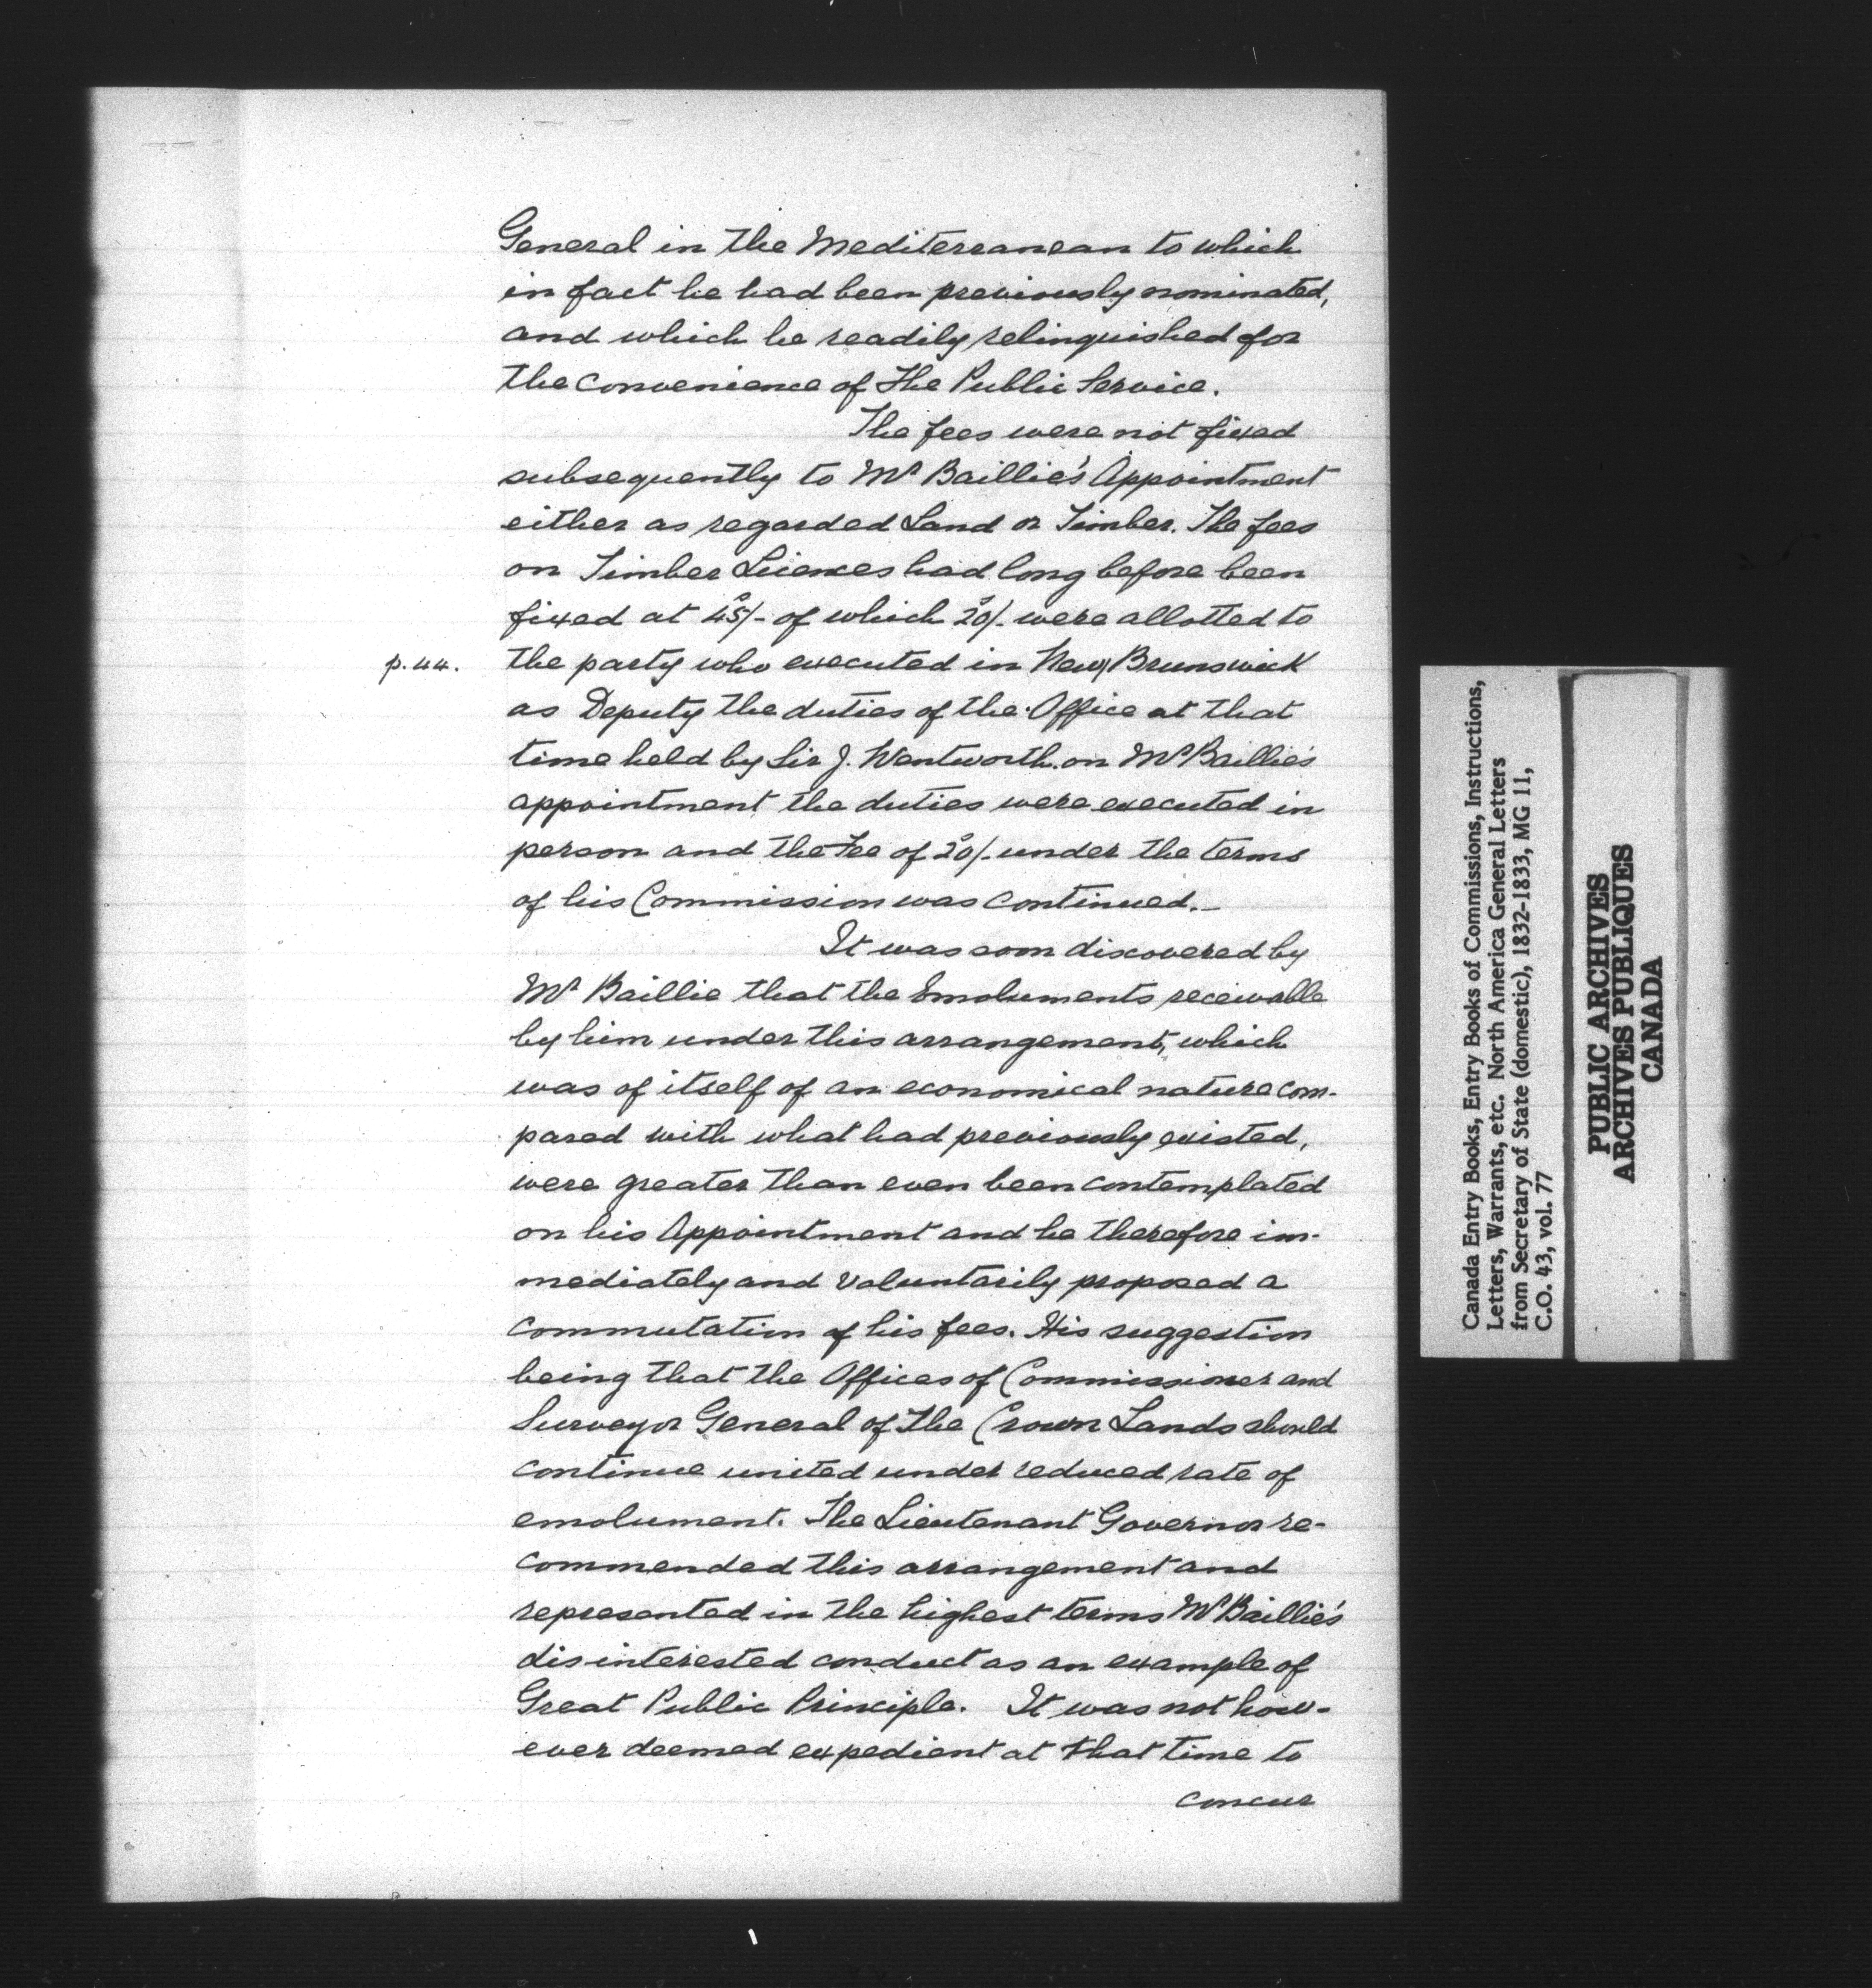 General in the Mediterranean to which
in fact he had been previously nominated,
and which he readily relinquished for
the convenience of the Public Service.
The fees were not fixed
subsequently to Mr Baillie's Appointment
either as regarded Land or Timber. The fees
on Timber Licences had long before been
fixed at 45s/- of which 20s/- were allotted to
p. 44.
the party who executed in New Brunswick
as Deputy the duties of the Office at that
time held by Sir J. Wentworth. on Mr Baillie's
appointment the duties were executed in
person and the Fee of 20s/- under the terms
of his Commission was continued.—
It was soon discovered by
Mr Baillie that the Emoluments receivable
by him under this arrangement, which
was of itself of an economical nature com-
pared with what had previously existed,
were greater than even been contemplated
on his Appointment and he therefore im-
mediately and voluntarily proposed a
commutation of his fees. His suggestion
being that the Offices of Commissioner and
Surveyor General of the Crown Lands should
continue united under reduced rate of
emolument. The Lieutenant Governor re-
commended this arrangement and
represented in the highest terms Mr Baillie's
disinterested conduct as an example of
Great Public Principle. It was not how-
ever deemed expedient at that time to
concur
Canada Entry Books, Entry Books of Commissions, Instructions,
Letters, Warrants, etc. North America General Letters
from Secretary of State (domestic), 1832-1833, MG 11,
C.O. 43, vol. 77
PUBLIC ARCHIVES
ARCHIVES PUBLIQUES
CANADA